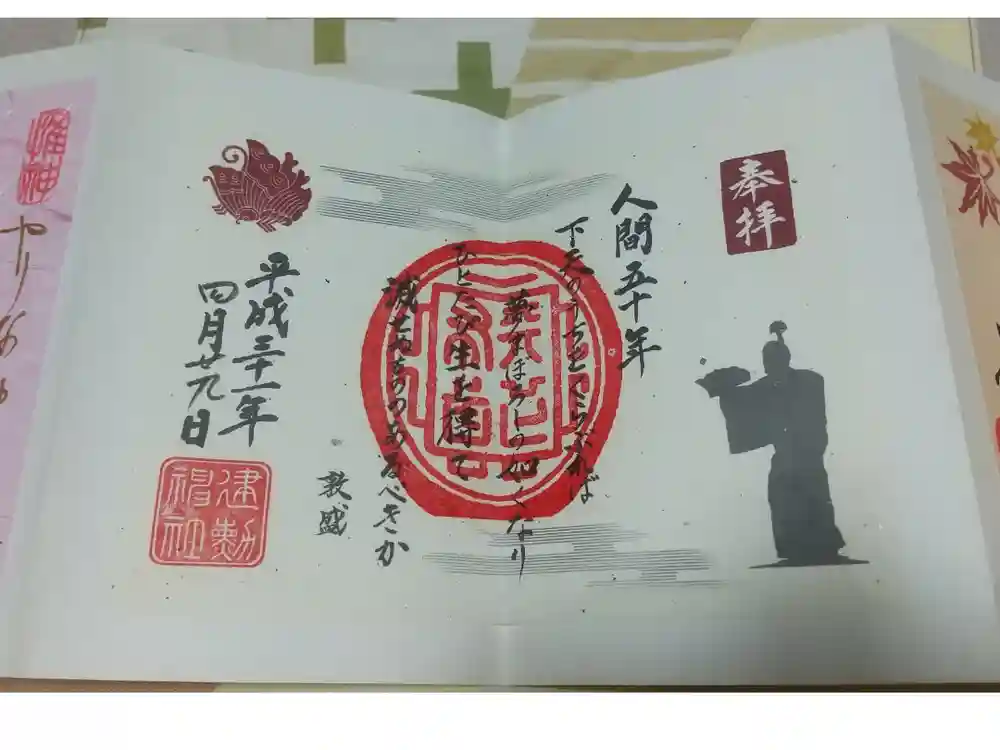 奉拝
人間五十年
下天のうちをくらぶれば
夢まぼろしの如くなり
ひとたび生を得て
滅せぬもののあるべきか
敦盛
平成三十一年
四月廿九日
建勲
神社
天下
布武